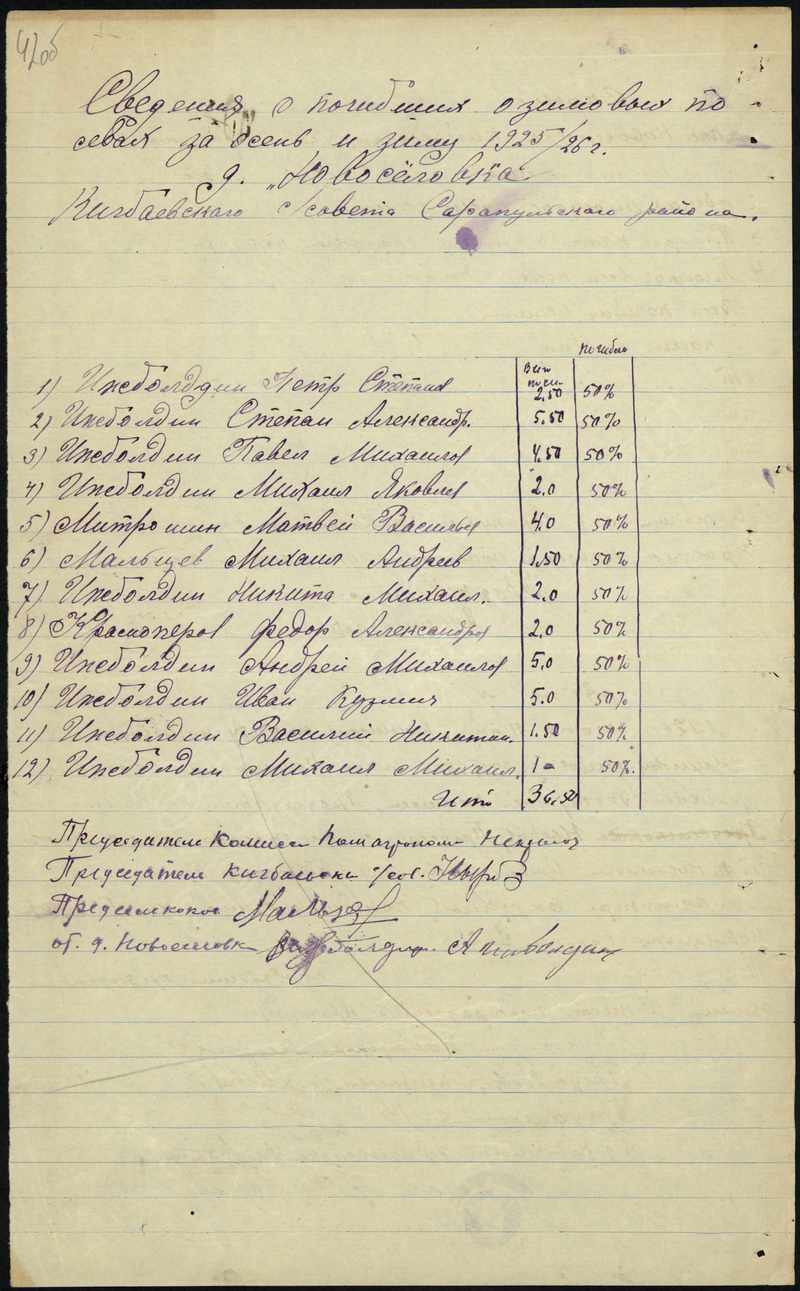 42об
Сведения о погибших озимовых по
севах за осень и зиму 1925/26 г.
д. "Новосёловка"
Кигбаевского с/совета Сарапульского района.
погибло
Всего посев.
1) Ижболдин Петр Степанов 2,50 50%
2) Ижболдин Степан Александр. 5.50 50%
3) Ижболдин Павел Михаилов 4.50 50%
4) Ижболдин Михаил Яковлев 2.0 50%
5) Митрошин Матвей Васильев 4.0 50%
6) Мальцев Михаил Андреев 1.50 50%
7) Ижболдин Никита Михаил. 2.0 50%
8) Красноперов Федор Александров 2.0 50%
9) Ижболдин Андрей Михаилов 5.0 50%
10) Ижболдин Иван Кузмич 5.0 50%
11) Ижболдин Василий Никитич. 1.50 50%
12) Ижболдин Михаил Михаил. 1- 50%.
Итго 36,50
Председатель Комисси Помагронома
Председатель Кигбаевск с/сов.
Пред
от. д. Новоселовк Ижболдин